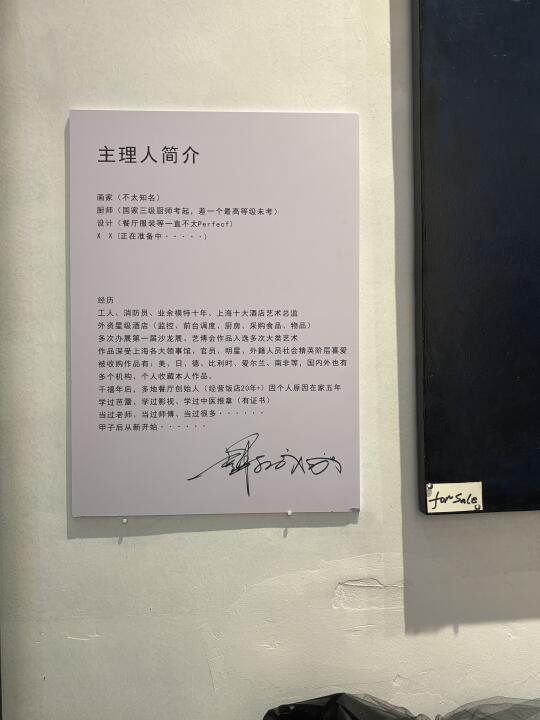 主理人简介
画家（不太知名）
厨师（国家三级厨师考起，差一个最高等级未考）
设计（餐厅服装等一直不太Perfecf）
X X（正在准备中·····）
经历
工人、消防员、业余模特十年、上海十大酒店艺术总监
外资星级酒店（监控、前台调度、厨房、采购食品、物品）
多次办展第一届沙龙展、艺博会作品入选多次大类艺术
作品深受上海各大领事馆，官员、明星、外籍人员社会精英阶层喜爱
被收购作品有：美、日、德、比利时、爱尔兰、南非等，国内外也有
多个机构、个人收藏本人作品。
千禧年后，多地餐厅创始人（经营饭店20年+）因个人原因在家五年
学过芭蕾、学过影视、学过中医推拿（有证书）
当过老师、当过师傅、当过很多······
甲子后从新开始······
for Sale